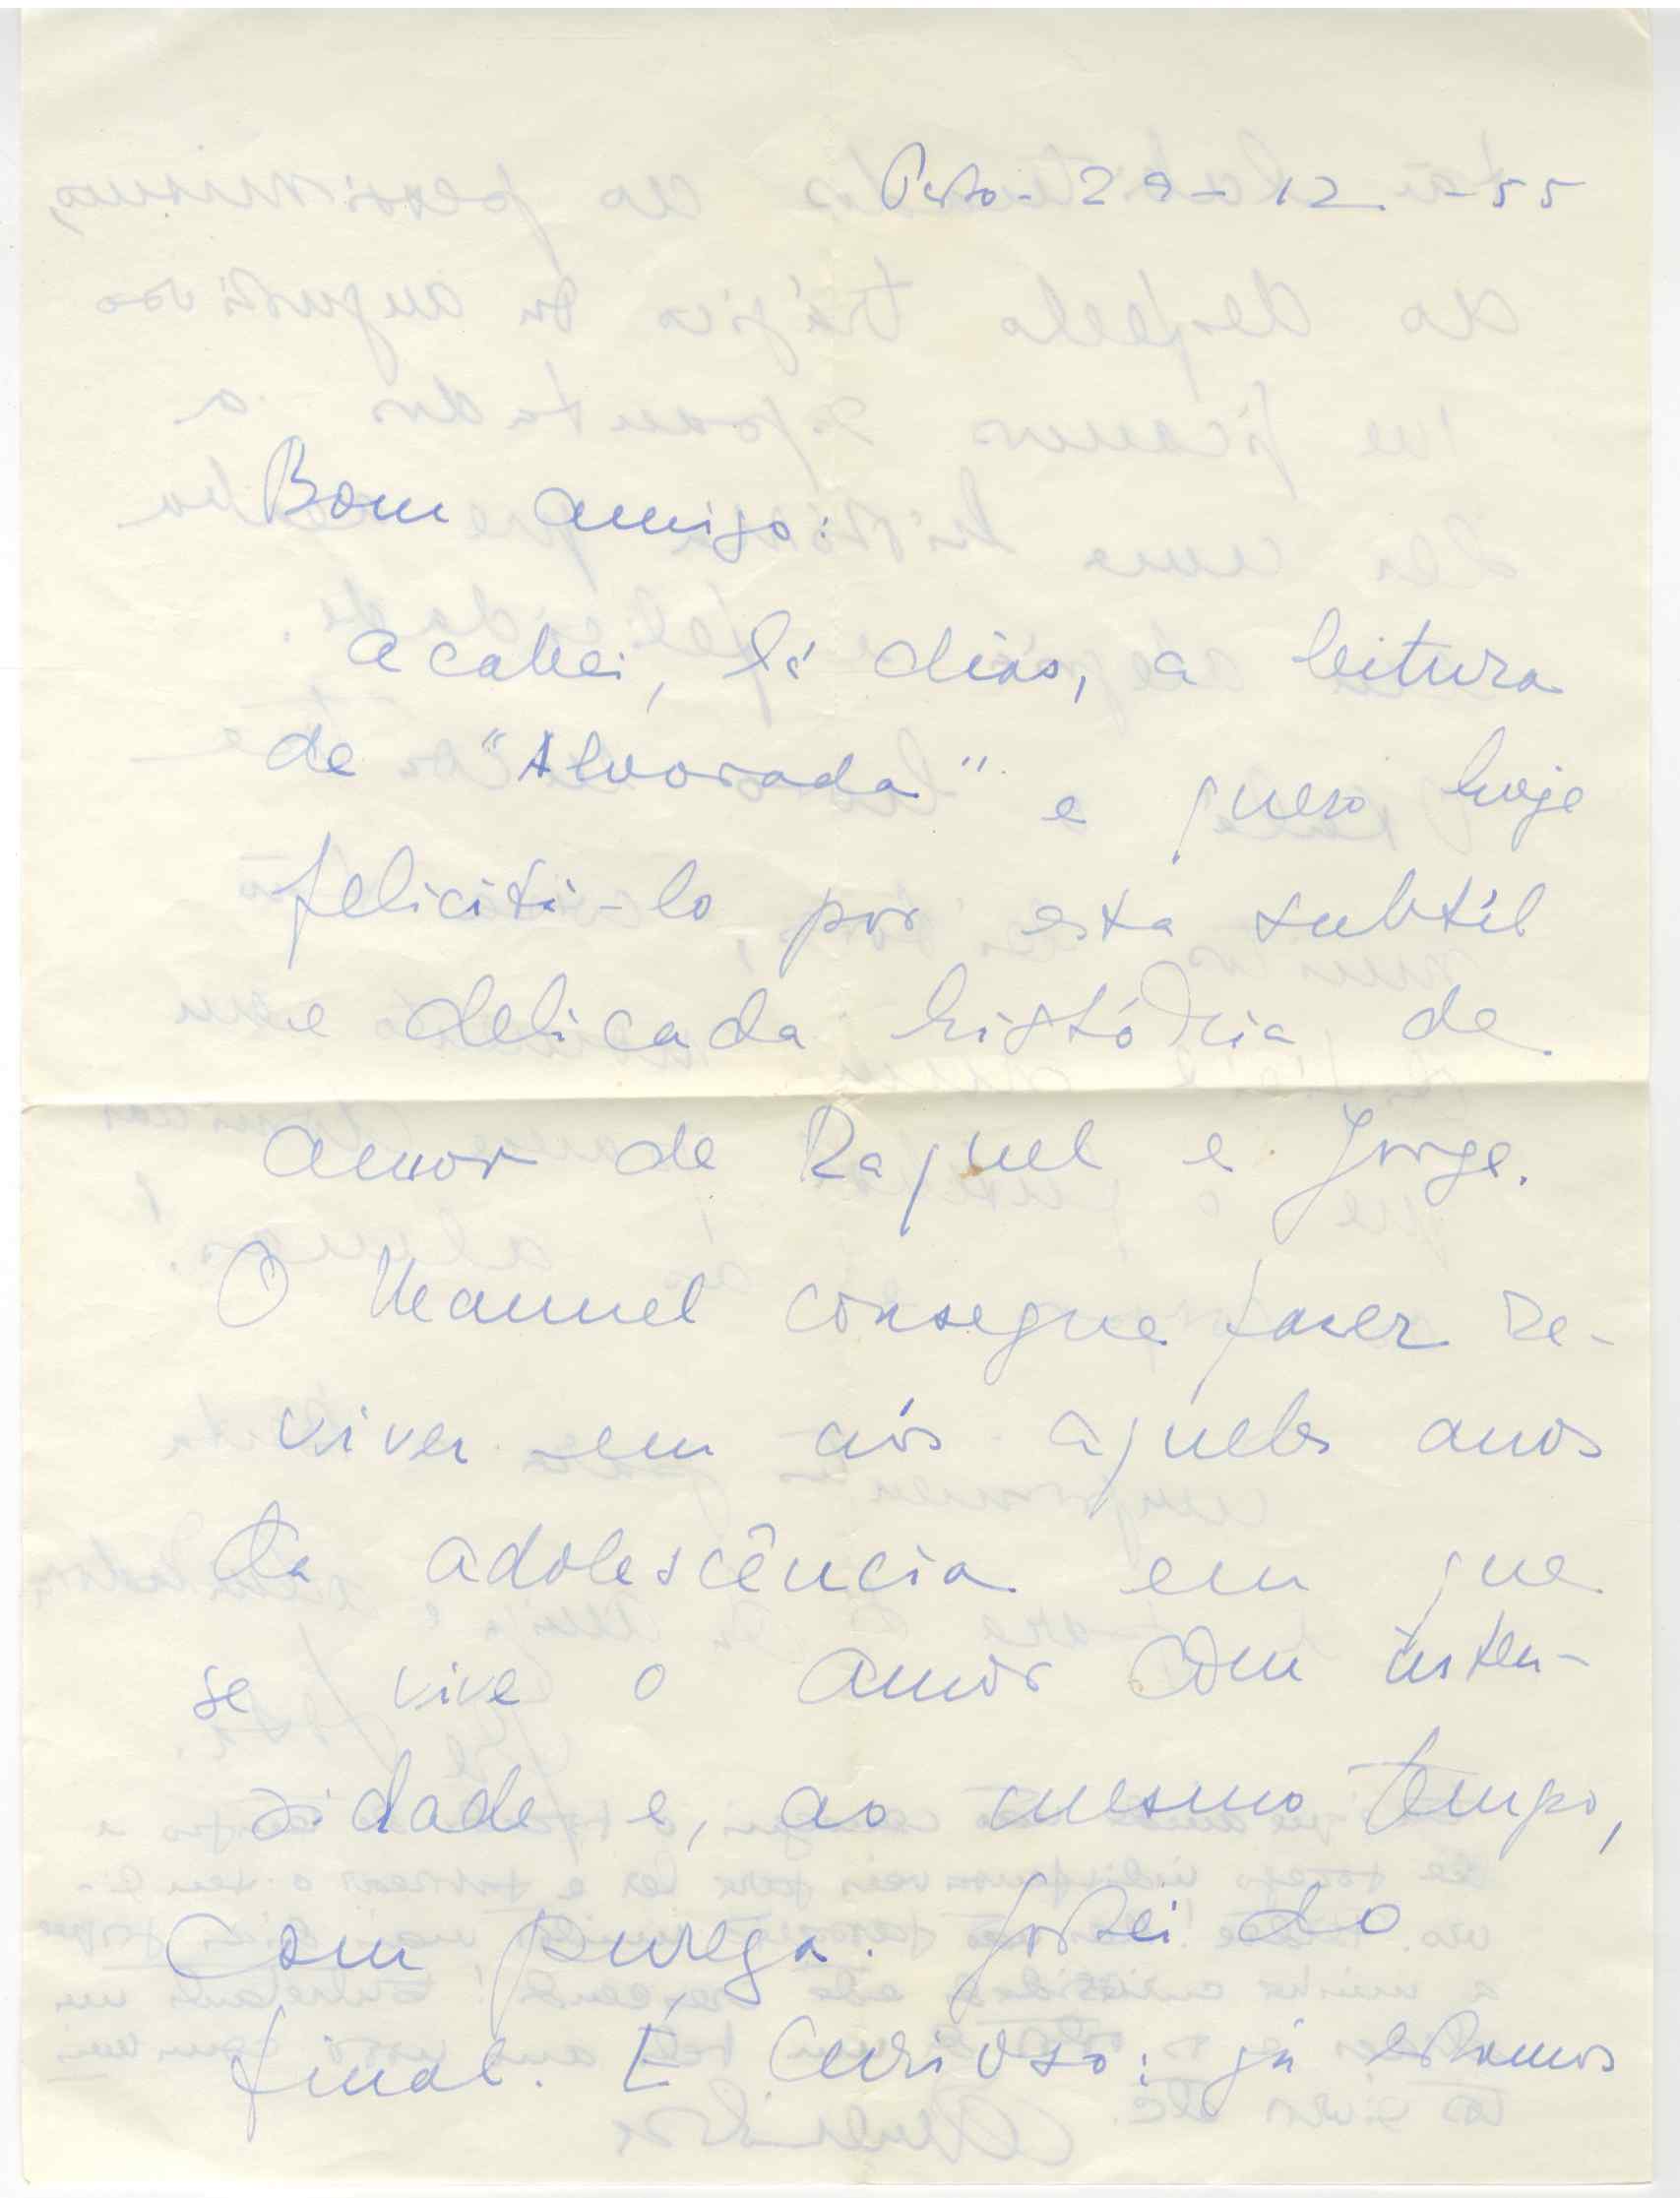 Porto - 29 - 12 - 55
Bom amigo:
Acabei, há dias, a leitura
de "Alvorada" e quero hoje
felicitá-lo por esta subtil
e delicada história de
amor de Raquel e Jorge.
O Manuel consegue fazer re-
viver em nós aqueles anos
da adolescência em que
se vive o amor com inten-
sidade e, ao mesmo tempo,
com pureza. Gostei do
final. É curioso: já estamos